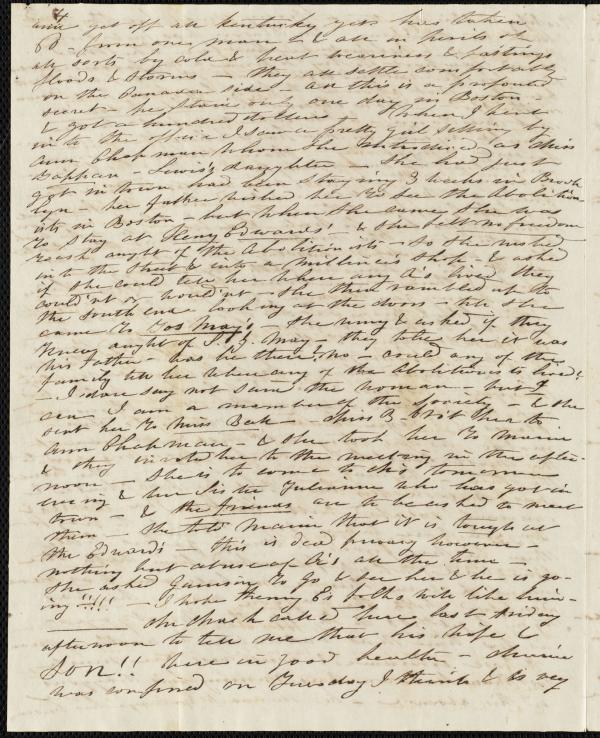 4
and get off all Kentucky gets has taken
68 from one man & all in perils of
all sorts by cold & heat weariness & fastings
floods & storms — they all settle comfortably
on the Canada side — all this is a profound
secret — he stays only one day in Boston
& got a hundred dollars — When I went
in to the office I saw a pretty girl sitting by
Ann Chapman whom she introduced as Miss
Tappan — Lewis's daughter — She had just
got in town had been staying 3 weeks in Brook
lyn — her father wished her to see the Abolition
ists in Boston — but when she came she was
to stay at Henry Edwards' & she felt no freedom
to ask aught of the Abolitionists — so she rushed
into the street & into a milliner's shop — & asked
if she could tell her where any A's lived they
could'nt or would'nt — she then rambled up to
the South end looking at the doors — till she
came to Jos May's — she rung & asked if they
knew aught of S. J. May — they told her it was
his Father — was he there? no — could any of the
family tell her where any of the Abolitionists lived?
— I dare say not said the woman — but I
can I am a member of the Society — & she
sent her to Miss Ball — Miss B brot her to
Ann Chapman — & she took her to Maria
& they invited her to the meeting in the after-
noon — She is to come to Ch's tomorrow
evening & her Sister Julianna who has got in
town — & the friends are to be asked to meet
them — She told Maria that it is tough at
the Edwards' — this is dead privacy however —
nothing but abuse of A's all the time —
She asked Garrison to go & see her & he is go-
ing !!!! — I hope Henry E's folks will like him —
Mr Chace called here last Friday
afternoon to tell me that his wife &
Son!! were in good health —
was confined on Tuesday I think & is very